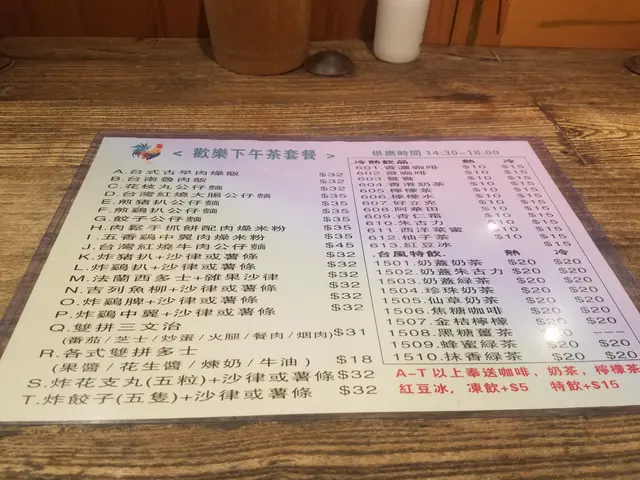 < 歡樂下午茶套餐 >
供應時間 14:30-18:00
A.台式古早肉燥飯 $32
B.台南魯肉飯 $32
C.花枝丸公仔麵 $35
D.台灣紅燒大腸公仔麵 $35
E.煎豬扒公仔麵 $35
F.煎鷄扒公仔麵 $35
G.餃子公仔麵 $35
H.肉鬆手抓餅配肉燥米粉 $35
I.五香鷄中翼肉燥米粉 $35
J.台灣紅燒牛肉公仔麵 $45
K.炸豬扒+沙律或薯條 $32
L.炸鷄扒+沙律或薯條 $32
M.法蘭西多士+雜果沙律 $32
N.吉列魚柳+沙律或薯條 $32
O.炸鷄脾+沙律或薯條 $32
P.炸鷄中翼+沙律或薯條 $32
Q.雙拼三文治
(蕃茄/芝士/炒蛋/火腿/餐肉/烟肉) $31
R.各式雙拼多士
(果醬/花生醬/煉奶/牛油) $18
S.炸花支丸(五粒)+沙律或薯條 $32
T.炸餃子(五隻)+沙律或薯條 $32
冷熱飲品 熱 冷
601.香濃咖啡 $10 $15
602.齋咖啡 $10 $15
603.鴛鴦 $10 $15
604.香港奶茶 $10 $15
605.檸檬茶 $10 $15
606.檸檬水 $10 $15
607.好立克 $10 $15
608.阿華田 $10 $15
609.杏仁霜 $10 $15
610.朱古力 $10 $15
611.西洋菜蜜 $10 $15
612.柚子茶 $10 $15
613.紅豆冰 $15
台風特飲 熱 冷
1501.奶蓋奶茶 $20 $20
1502.奶蓋朱古力 $20 $20
1503.奶蓋綠茶 $20 $20
1504.珍珠奶茶 $20 $20
1505.仙草奶茶 $20 $20
1506.焦糖咖啡 $20 $20
1507.金桔檸檬 $20 $20
1508.黑糖薑茶 $20 --
1509.蜂蜜綠茶 $20 $20
1510.抹香綠茶 $20 $20
A-T以上奉送咖啡，奶茶，檸檬茶
紅豆冰，凍飲+$5 特飲+$15